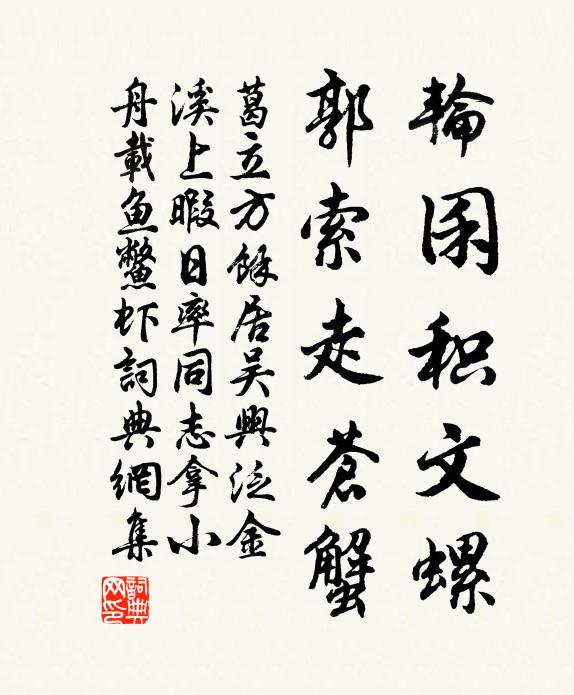 輪囷积文螺
郭索走蒼蟹
葛立方餘居吴興泛金
溪上暇日率同志拿小
舟載鱼鱉虾詞典網集
詞典网印